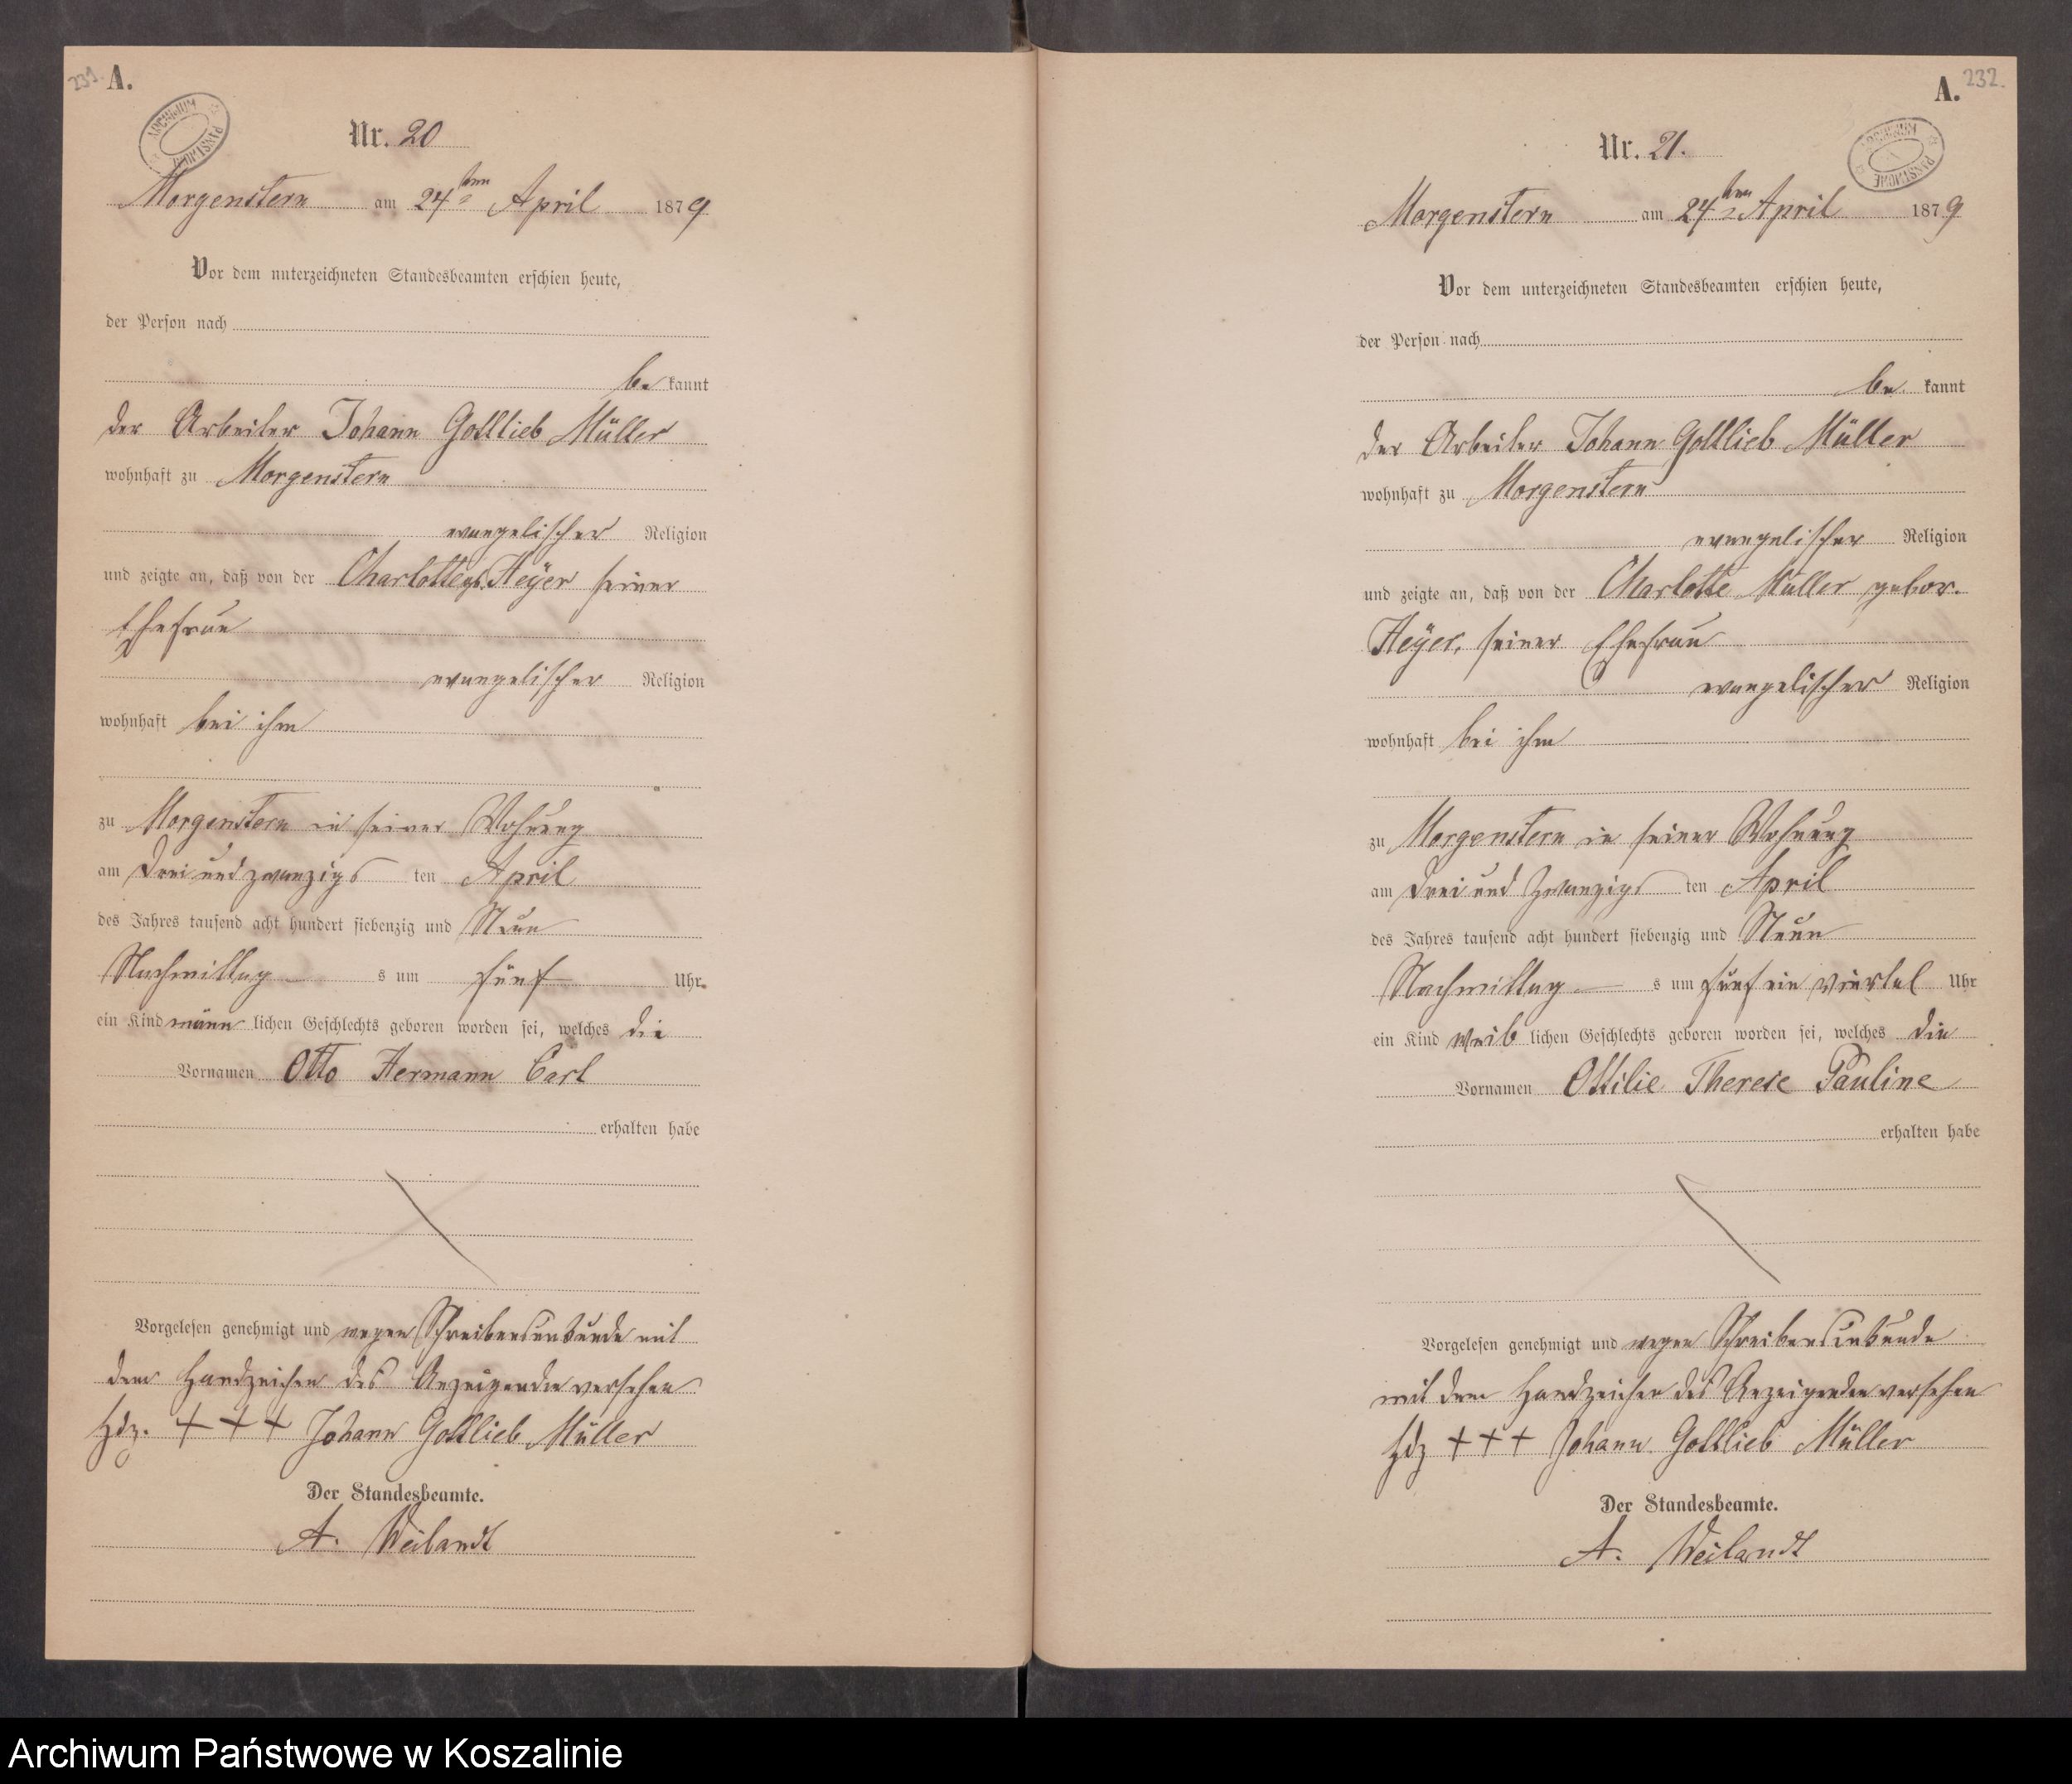 231. A.
ARCHIWUM PAŃSTWOWE
Nr. 20
Morgenstern am 24ten April 1879
Vor dem unterzeichneten Standesbeamten erschien heute,
der Person nach
be kannt
der Arbeiter Johann Gottlieb Müller
wohnhaft zu Morgenstern
evangelischer Religion
und zeigte an, daß von der Charlotte geb. Heyer seiner
Ehefrau
evangelischer Religion
wohnhaft bei ihm
zu Morgenstern in seiner Wohnung
am drei und zwanzigs ten April
des Jahres tausend acht hundert siebenzig und Neun
Nachmittag s um fünf Uhr
ein Kind männ lichen Geschlechts geboren worden sei, welches die
Vornamen Otto Hermann Carl
erhalten habe
Vorgelesen genehmigt und wegen Schreibensunkunde mit
dem Handzeichen des Anzeigenden versehen
Hdz. +++ Johann Gottlieb Müller
Der Standesbeamte.
A. Weilandt
A. 232.
ARCHIWUM PAŃSTWOWE
Nr. 21.
Morgenstern am 24ten April 1879
Vor dem unterzeichneten Standesbeamten erschien heute,
der Person nach
be kannt
der Arbeiter Johann Gottlieb Müller
wohnhaft zu Morgenstern
evangelischer Religion
und zeigte an, daß von der Charlotte Müller gebor.
Heyer, seiner Ehefrau
evangelischer Religion
wohnhaft bei ihm
zu Morgenstern in seiner Wohnung
am drei und zwanzigs ten April
des Jahres tausend acht hundert siebenzig und Neun
Nachmittag s um fünf ein viertel Uhr
ein Kind weib lichen Geschlechts geboren worden sei, welches die
Vornamen Ottilie Therese Pauline
erhalten habe
Vorgelesen genehmigt und wegen Schreibensunkunde
mit dem Handzeichen des Anzeigenden versehen
Hdz +++ Johann Gottlieb Müller
Der Standesbeamte.
A. Weilandt
Archiwum Państwowe w Koszalinie